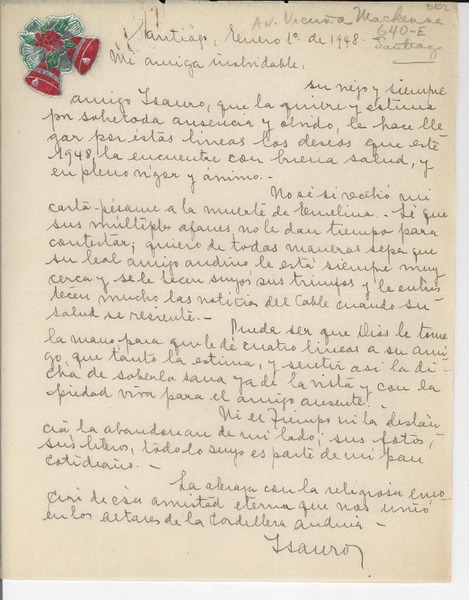 8102
Av. Vicuña Mackenna
640-E
Santiago
Santiago, Enero 1º de 1948
Mi amiga inolvidable:
su viejo y siempre
amigo Isauro, que la quiere y estima
por sobre toda ausencia y olvido, le hace lle
gar por éstas líneas los deseos que este
1948 la encuentre con buena salud, y
en pleno vigor y ánimo.-
No sé si recibió mi
carta-pésame a la muerte de Emelina.. Sé que
sus múltiples afanes no le dan tiempo para
contestar; quiero de todas maneras sepa que
su leal amigo andino le está siempre muy
cerca y se le hacen suyos sus triunfos y le entris
tecen mucho las noticias del Cable cuando su
salud se resiente.-
Pueda ser que Dios le tome
la mano para que le dé cuatro líneas a su ami
go, que tanto la estima, y sentir así la di-
cha de saberla sana ya de la vista y con la
piedad viva para el amigo ausente.-
Ni el Tiempo ni la distan
cia la abandonan de mi lado; sus fotos,
sus libros, todo lo suyo es parte de mi pan
cotidiano.-
La abraza con la religiosa emo-
ción de esa amistad eterna que nos unió
en los altares de la Cordillera andina-
Isauro